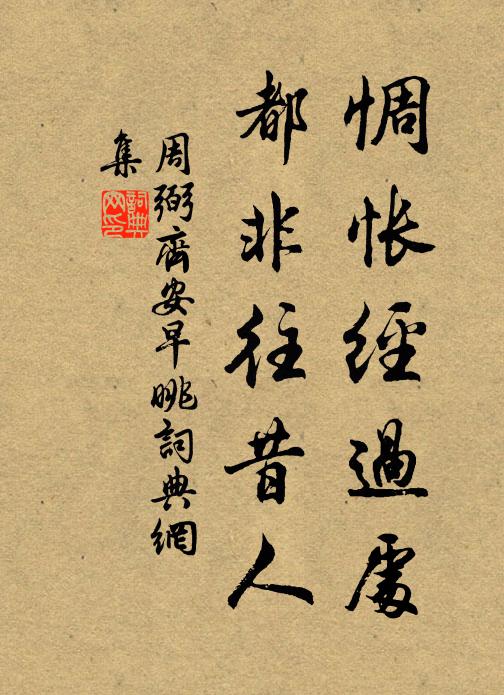 惆悵經過處
都非往昔人
周弼齊安早眺詞典網
集
詞典網印